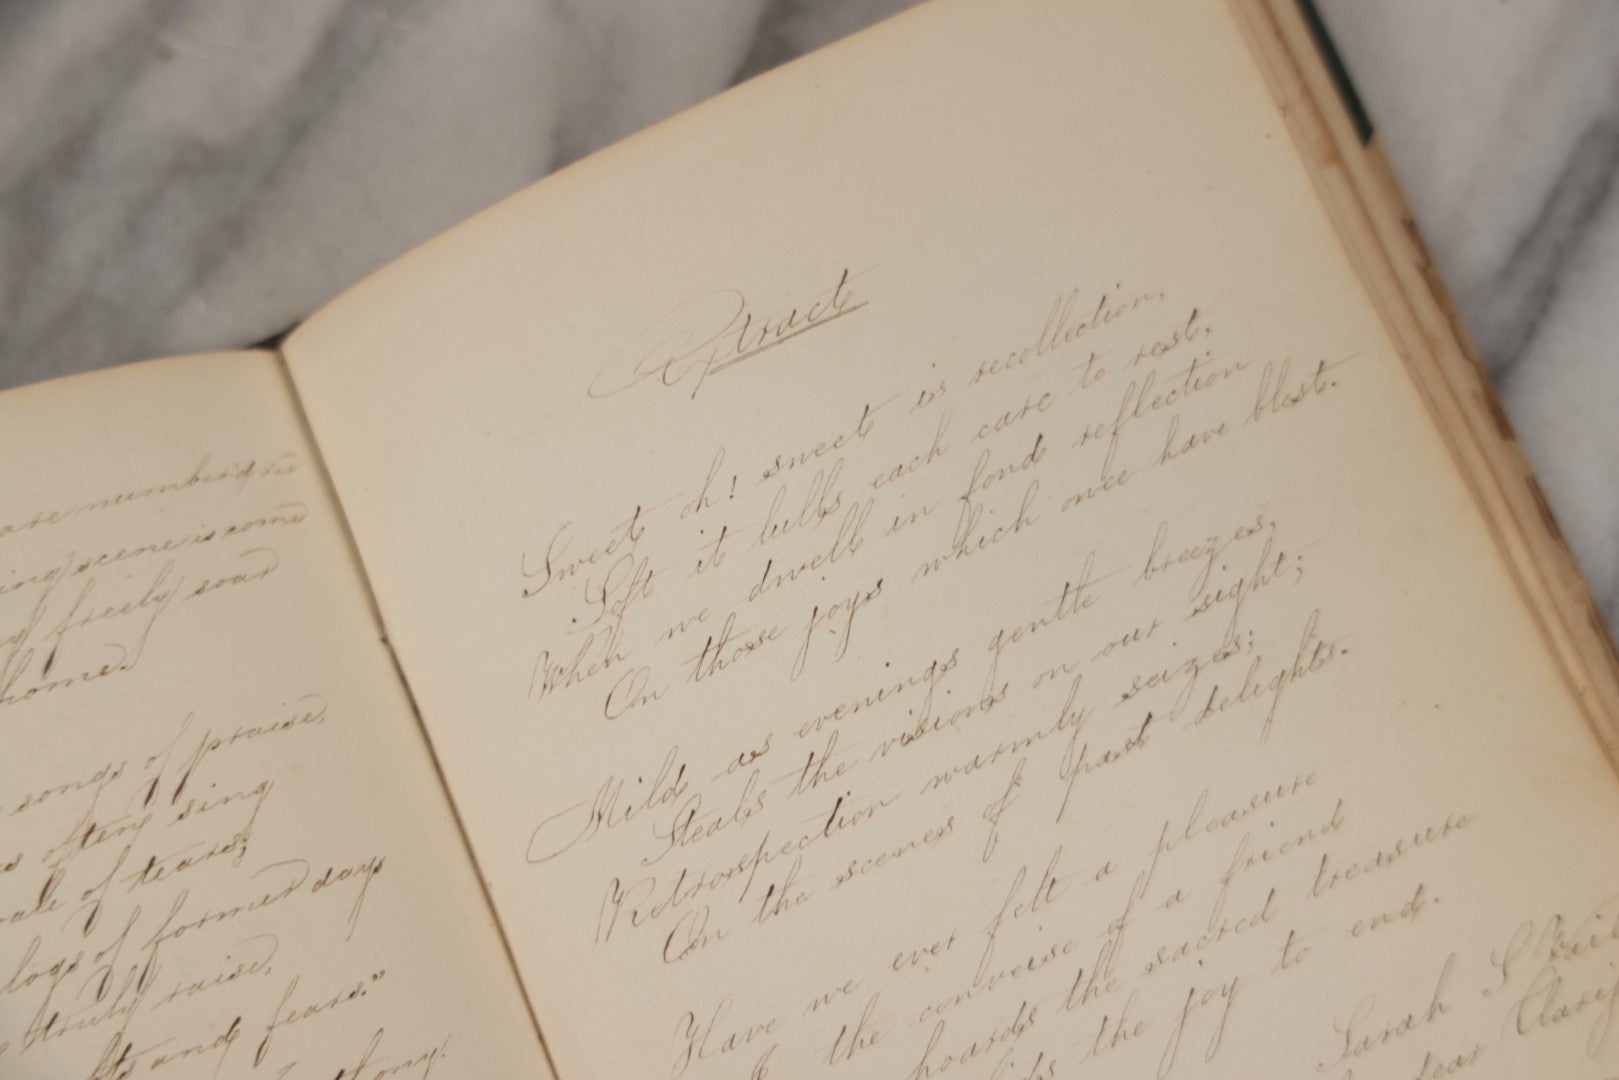 are numberd
scene is come
freely soar
home.
songs of praise,
often sing
vale of tears;
of former days
truly raise,
and fears."
Extract
Sweet oh! sweet is recollection,
Soft it lulls each care to rest,
When we dwell in fond reflection
On those joys which once have blest.
Mild as evenings gentle breezes,
Steals the visions on our sight;
Retrospection warmly seizes;
On the scenes of past delights.
Have we ever felt a pleasure
the converse of a friend
hoards the sacred treasure
the joy to end.
Sarah S